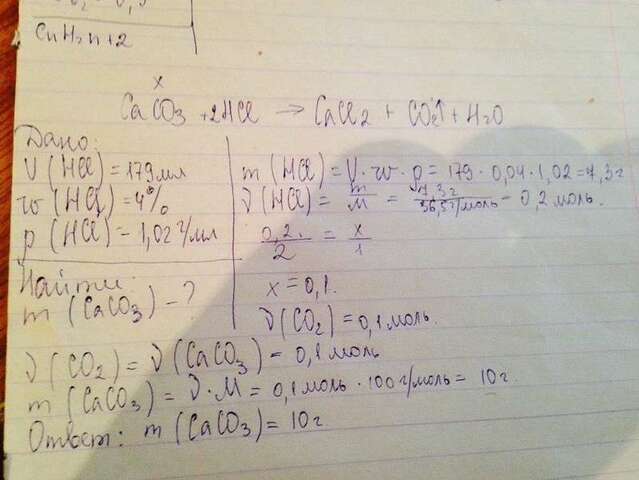 CnH2n+2
x
CaCO3 + 2HCl → CaCl2 + CO2↑ + H2O
Дано:
V(HCl) = 179 мл
w(HCl) = 4%
ρ(HCl) = 1,02 г/мл
Найти:
m(CaCO3) - ?
m(HCl) = V · w · ρ = 179 · 0,04 · 1,02 = 7,3 г
ν(HCl) = m/M = 7,3 г / 36,5 г/моль = 0,2 моль.
0,2 / 2 = x / 1
x = 0,1.
ν(CO2) = 0,1 моль.
ν(CO2) = ν(CaCO3) = 0,1 моль
m(CaCO3) = ν · M = 0,1 моль · 100 г/моль = 10 г.
Ответ: m(CaCO3) = 10 г